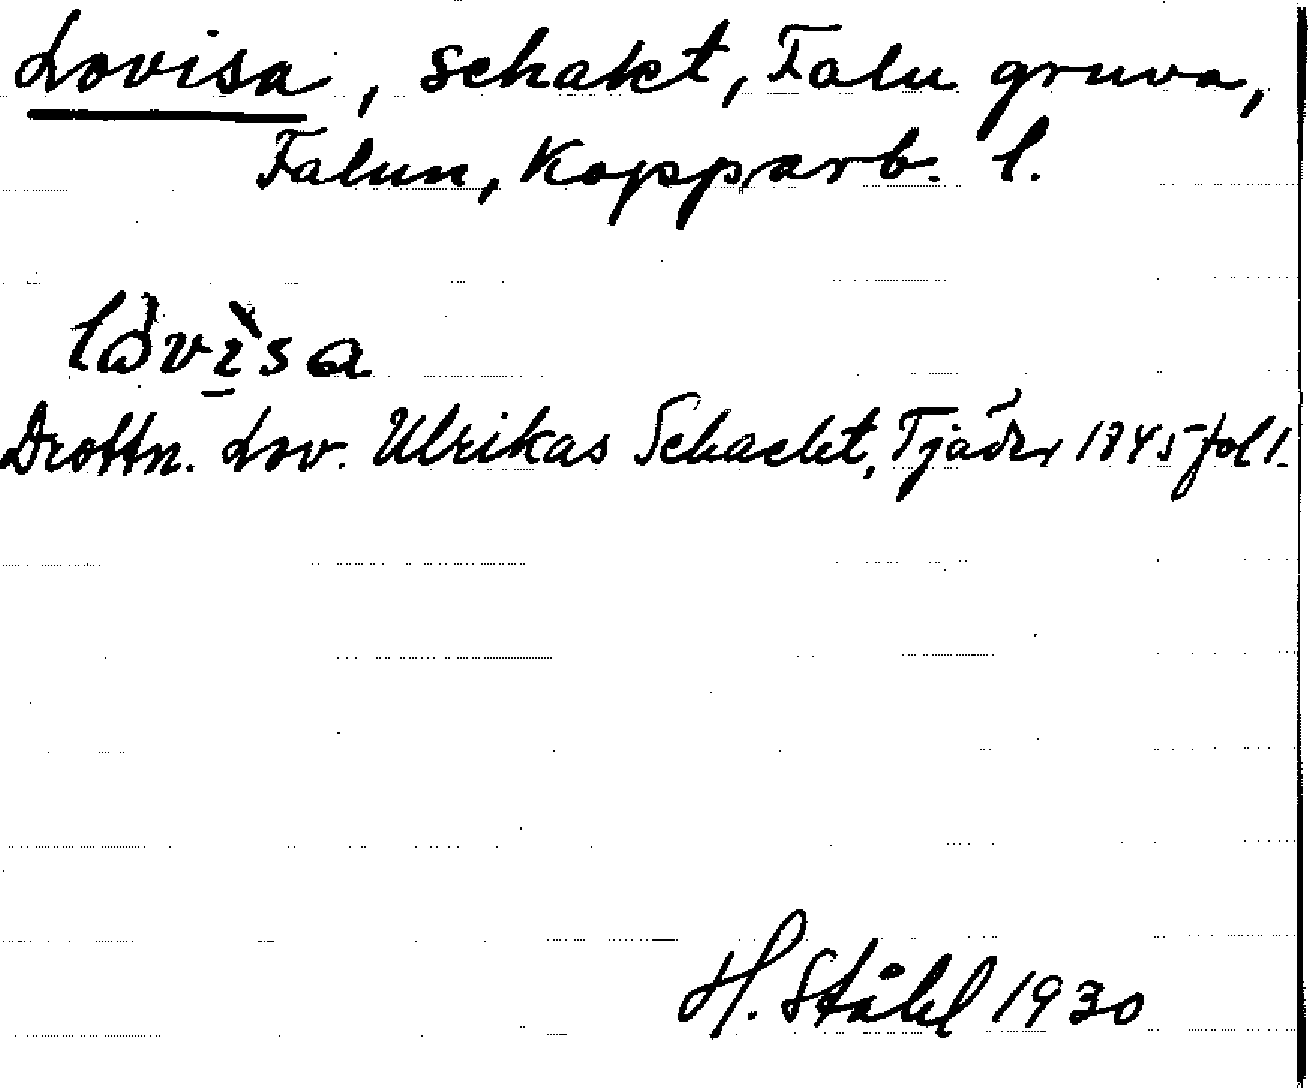 Lovisa, schakt, Falu gruva,
Falun, Kopparb. l.
lòvìsa
Drottn. Lov. Ulrikas Schacht, Tjäder 1845 fol 1.
H. Ståhl 1930